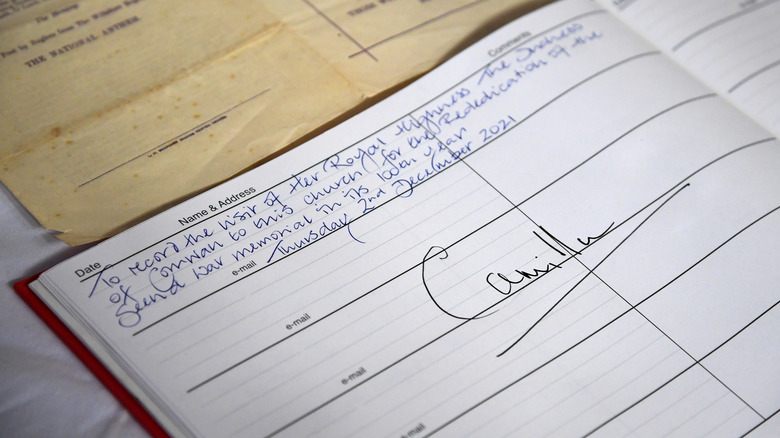 The Morning
Post by
from The
THE NATIONAL ANTHEM
Comments
Name & Address
Date
To record the visit of Her Royal Highness The Duchess
of Cornwall to this church for the Rededication of the
Seend war memorial in its 100th year
Thursday 2nd December 2021
e-mail
Camilla
e-mail
e-mail
e-mail